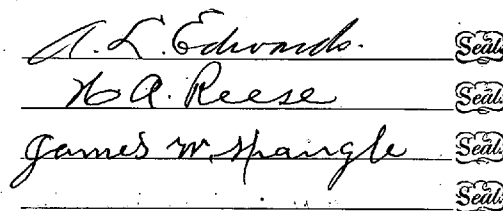 A. L. Edwards. Seal
H. A. Reese Seal
James W. Spangle Seal
Seal